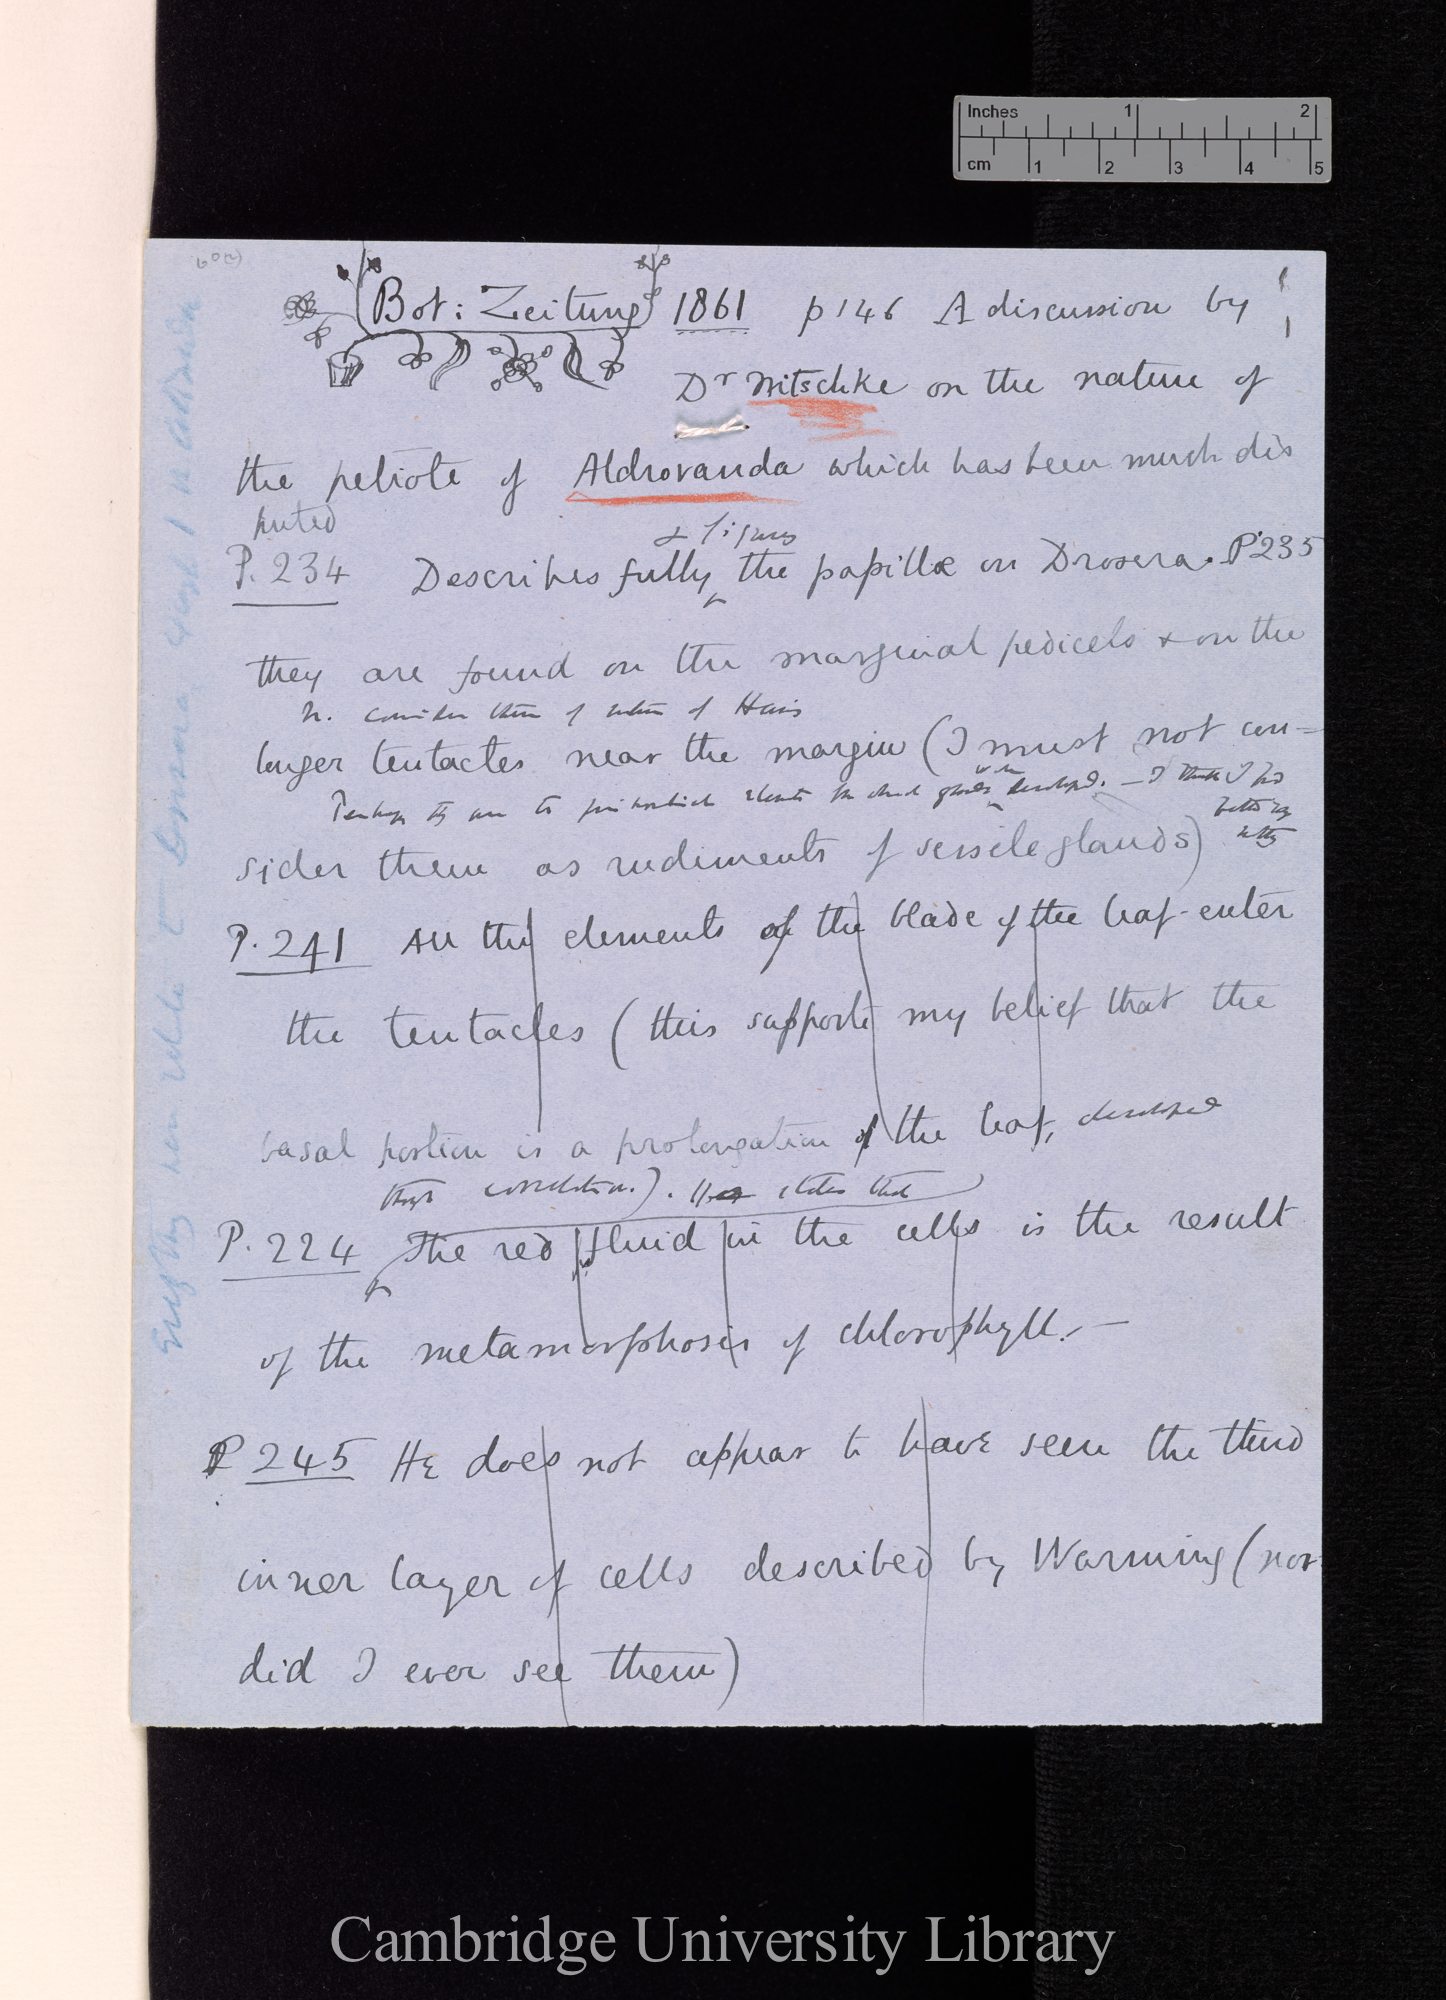 Inches 1 2
cm 1 2 3 4 5
60(2)
Bot: Zeitung 1861 p 146 A discussion by
Dr Nitschke on the nature of
the petiole of Aldrovanda which has been much dis
puted
& figures
P. 234 Describes fully the papillæ on Drosera. P 235
they are found on the marginal pedicels & on the
N. consider them of nature of Hairs
longer tentacles near the margin (I must not con-
Perhaps they are to glands developed. — I think I had
better say
sider them as rudiments of sessile glands)
P. 241 All the elements of the blade of the leaf enter
the tentacles (this supports my belief that the
basal portion is a prolongation of the leaf, developed
states that
P. 224 The red fluid in the cells is the result
of the metamorphosis of chlorophyll. —
P 245 He does not appear to have seen the third
inner layer of cells described by Warming (nor
did I ever see them)
Cambridge University Library